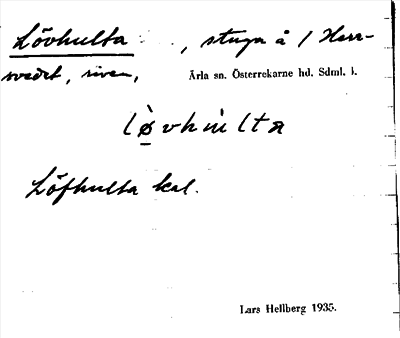 Lövhulta , stuga å / Herr-
svedet, riven, Ärla sn. Österrekarne hd. Sdml. l.
lø̀vhùlta
Löfhulta kal.
Lars Hellberg 1935.